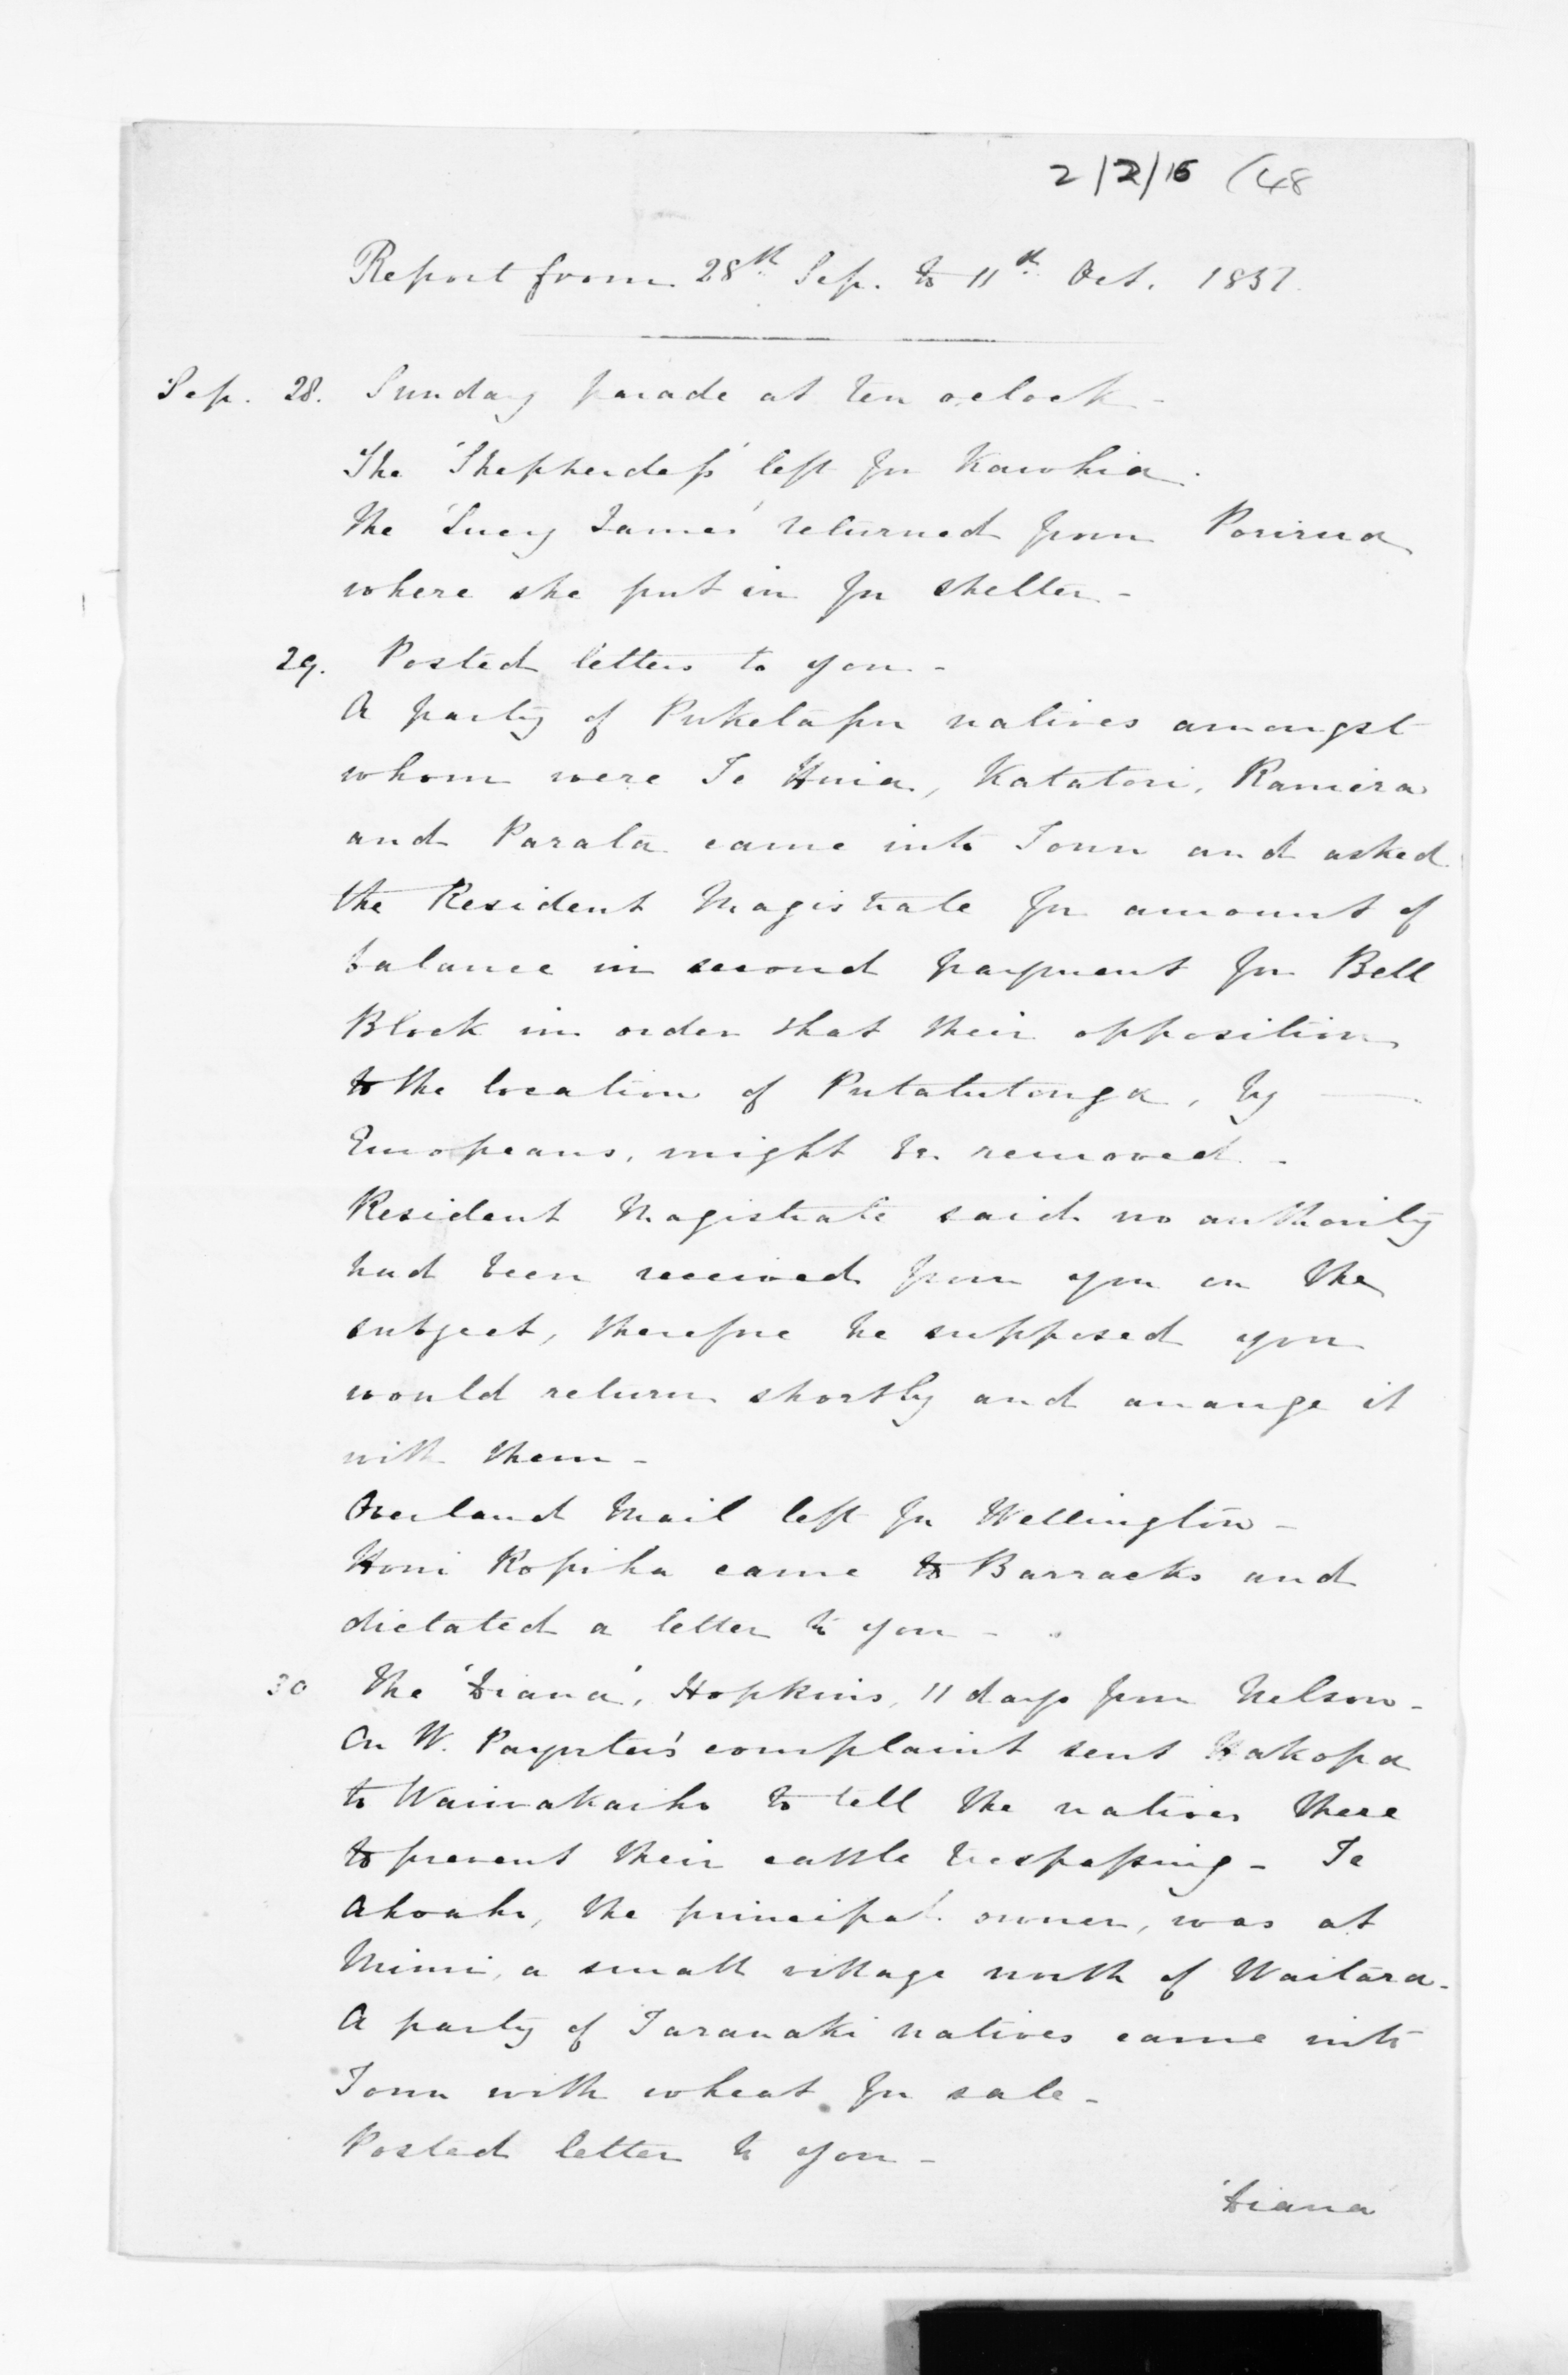 2/2/16 (48
Report from 28th Sep. to 11th Oct. 1851.
Sep. 28. Sunday parade at ten oclock -
The 'Shepherdess' left for Kawhia.
The 'Lucy James' returned from Porirua
where she put in for shelter -
29. Posted letters to you. -
A party of Puketapu natives amongst
whom were Te Huia, Katatori, Raniera
and Parata came into Town and asked
the Resident Magistrate for amount of
balance in second payment for Bell
Block in order that their opposition
to the location of Putatutonga, by
Europeans, might be removed. -
Resident Magistrate said no authority
had been received from you on the
subject, therefore he supposed you
would return shortly and arrange it
with them -
Overland Mail left for Wellington -
Honi Ropiha came to Barracks and
dictated a letter to you -
30 The 'Diana', Hopkins, 11 days from Nelson -
On W. Paynter's complaint sent Hakopa
to Waiwakaiho to tell the natives there
to prevent their cattle trespassing - Te
Ahoaho, the principal owner, was at
Mimi, a small village north of Waitara -
A party of Taranaki natives came into
Town with wheat for sale -
Posted letter to you -
'Diana'